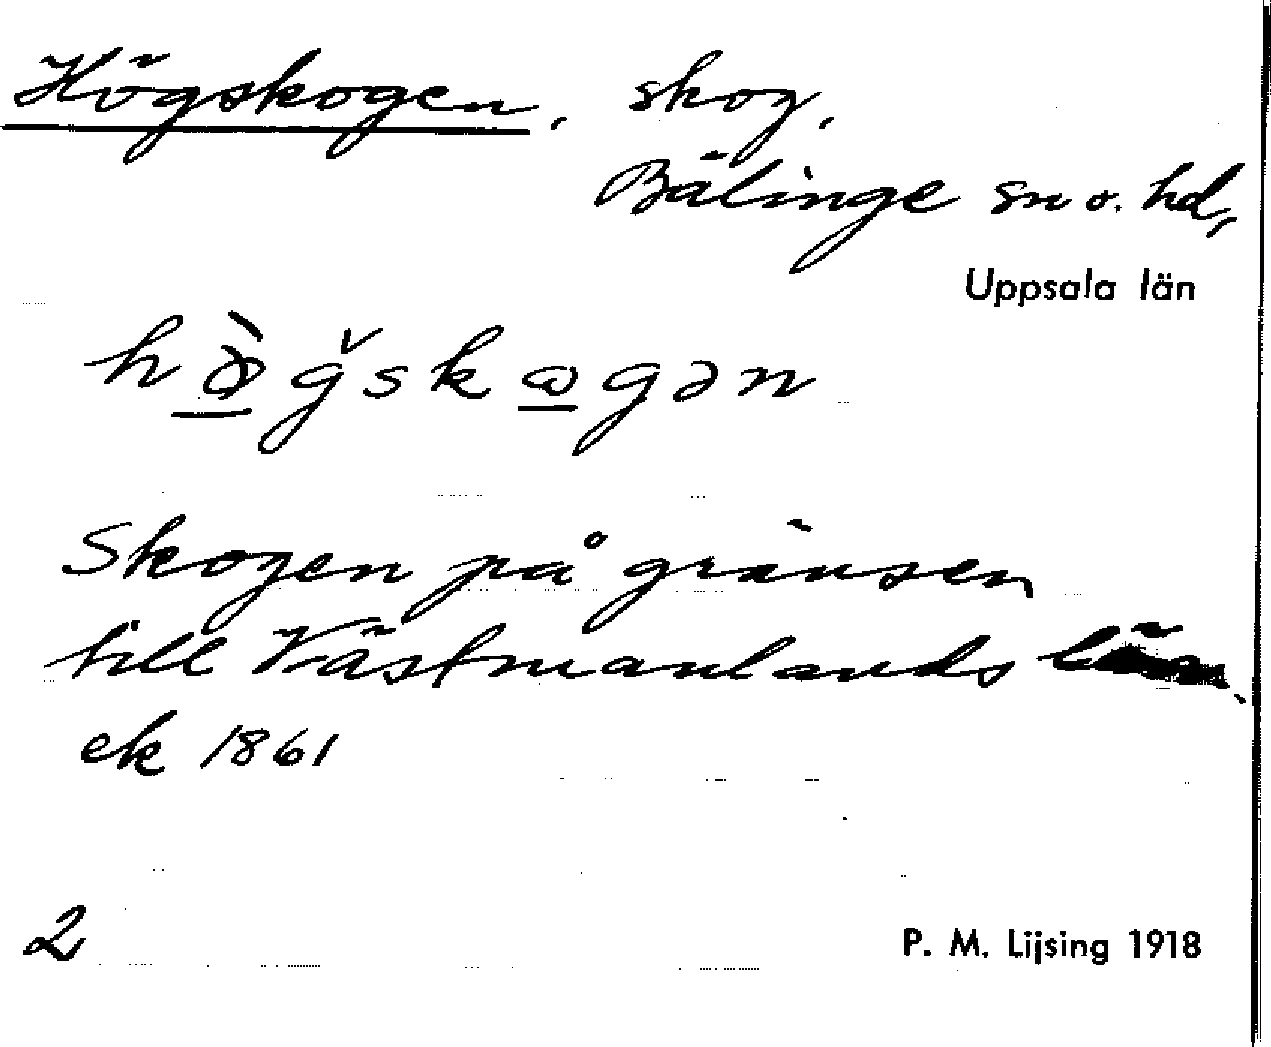 Högskogen, skog,
Bälinge sn o. hd,
Uppsala län
Skogen på gränsen
till Västmanlands län.
ek 1861
2
P. M. Lijsing 1918